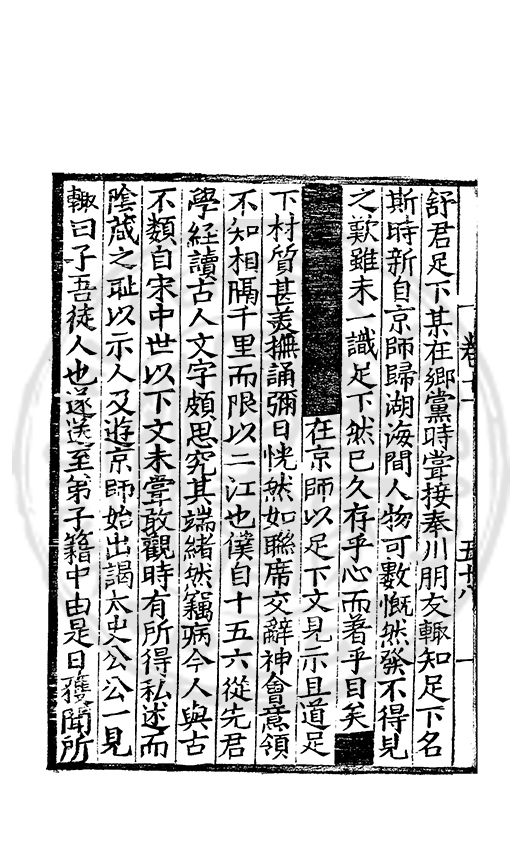 卷十一 五十八
舒君足下某在鄉黨時嘗接奉川朋友輙知足下名
斯時新自京師歸湖海間人物可數慨然發不得見
之歎雖未一識足下然已久存乎心而著乎目矣
在京師以足下文見示且道足
下材質甚美撫誦彌日恍然如聯席交辭神會意領
不知相隔千里而限以二江也僕自十五六從先君
學經讀古人文字頗思究其端緒然竊病今人與古
不類自宋中世以下文未嘗敢觀時有所得私述而
陰蔵之耻以示人及遊京師始出謁太史公公一見
輙曰子吾徒人也遂送至弟子籍中由是日獲聞所